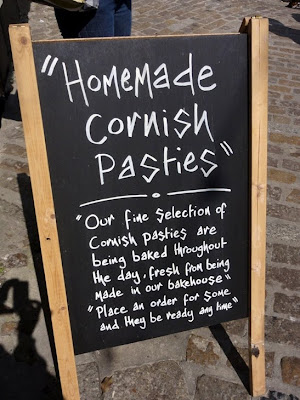 "Homemade
Cornish
Pasties"
"Our fine selection of
Cornish pasties are
being baked throughout
the day, fresh from being
made in our bakehouse"
"Place an order for some
and they be ready any time"